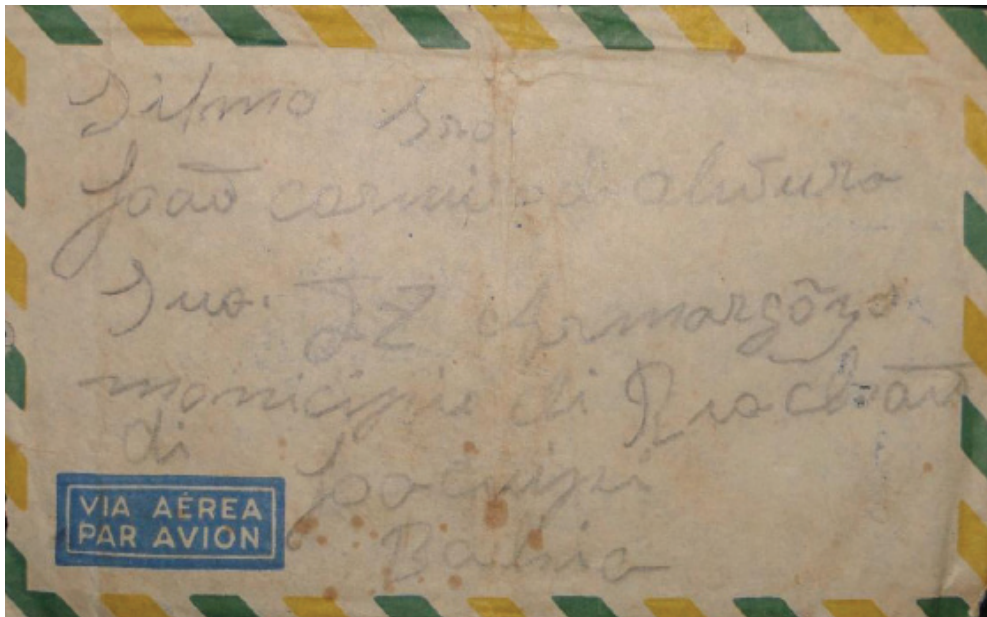 Sitmo Snõ.
João carneiro di oliveura
Sua. FZ
monicipio di Riachão
di Jaacuipi
Bahia
VIA AÉREA
PAR AVION